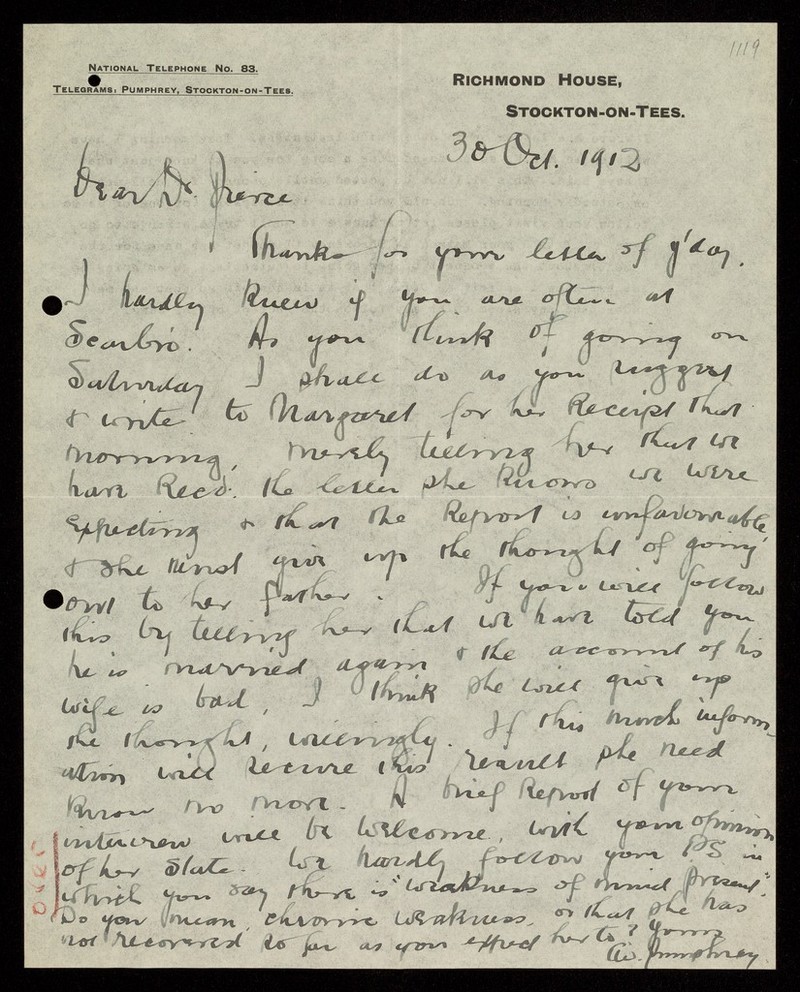 1119
NATIONAL TELEPHONE No. 83.
TELEGRAMS: PUMPHREY, STOCKTON-ON-TEES.
RICHMOND HOUSE,
STOCKTON-ON-TEES.
30 Oct. 1912
Dear Dr. Pierce
Thanks for your letter of y'day.
I hardly knew if you are often at
Scarbro'. As you think of going on
Saturday I shall do as you suggest
& write to Margaret for her Receipt that
morning, merely telling her that we
have Recd. the letter she knows we were
expecting & that the Report is unfavourable,
& she must give up the thought of going
out to her father. If you will follow
this by telling her that we have told you
he is married again & the account of his
wife is bad, I think she will give up
the thought, willingly. If this much inform-
ation will secure this result she need
know no more. A brief Report of your
interview will be welcome, with your opinion
of her state. We hardly follow your PS. in
which you say there is "weakness of mind present".
Do you mean, chronic weakness, or that she has
not recovered so far as you expected her to? Yours
Pumphrey
OVER